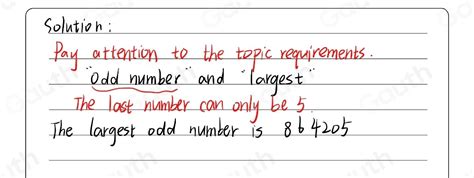 Solution:
Pay attention to the topic requirements.
"Odd number" and "largest"
The last number can only be 5.
The largest odd number is 864205